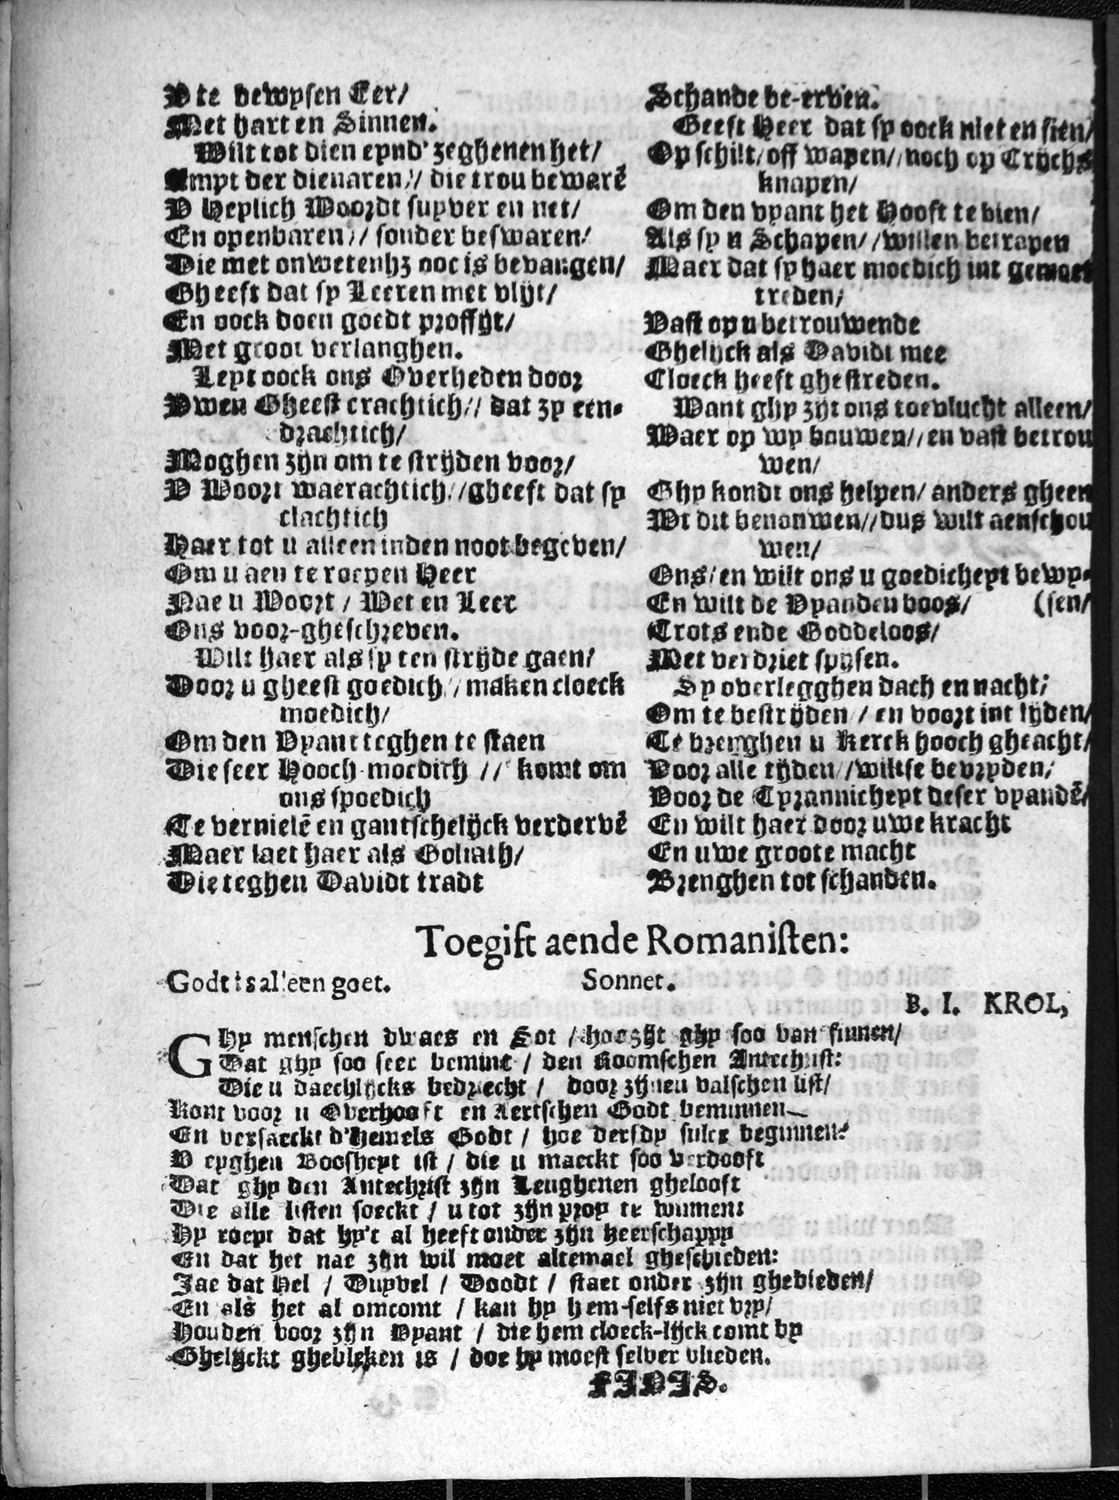 V te bewysen Eer/
Met hart en Sinnen.
Wilt tot dien eynd' zeghenen het/
Ampt der dienaren// die trou bewarẽ
V Heylich Woordt suyver en net/
En openbaren// sonder beswaren/
Die met onwetenhz ooc is bevangen/
Gheeft dat sy Leeren met vlijt/
En oock doen goedt proffijt/
Met groot verlanghen.
Leyt oock ons Overheden door
Vwen Gheest crachtich// dat zy een-
drachtich/
Moghen zijn om te strijden voor/
V Woort waerachtich//gheeft dat sy
clachtich
Haer tot u alleen inden noot begeven/
Om u aen te roepen Heer
Nae u Woort / Wet en Leer
Ons voor-gheschreven.
Wilt haer als sy ten strijde gaen/
Door u gheest goedich// maken cloeck
moedich/
Om den Vyant teghen te staen
Die seer Hooch moedich // komt om
ons spoedich
Te vernielẽ en gantschelijck verdervẽ
Maer laet haer als Goliath/
Die teghen Davidt tradt
Schande be-erven.
Geeft Heer dat sy oock niet en sien/
Op schilt/ off wapen//noch op Crijchs
knapen/
Om den vyant het Hooft te bien/
Als sy u Schapen//willen betrapen
Maer dat sy haer moedich int gemoet
treden/
Vast op u betrouwende
Ghelijck als Davidt mee
Cloeck heeft ghestreden.
Want ghy zijt ons toevlucht alleen/
Waer op wy bouwen//en vast betrou
wen/
Ghy kondt ons helpen/ anders gheen
Wt dit benouwen//dus wilt aenschou
wen/
Ons/ en wilt ons u goedicheyt bewy-
En wilt de Vyanden boos/ (sen/
Trots ende Goddeloos/
Met verdriet spijsen.
Sy overlegghen dach en nacht/
Om te bestrijden / en voort int lijden/
Te brenghen u Kerck hooch gheacht/
Voor alle tijden//wiltse bevryden/
Voor de Tyrannicheyt deser vyandẽ/
En wilt haer door uwe kracht
En uwe groote macht
Brenghen tot schanden.
Toegift aende Romanisten:
Godt is alleen goet. Sonnet.
B. I. KROL,
GHy menschen dwaes en Sot / hoe zijt ghy soo van sinnen/
Dat ghy soo seer bemint / den Roomschen Antechrist:
Die u daechlijcks bedriecht / door zijnen valschen list/
Kont voor u Overhooft en Aertschen Godt beminnen
En versaeckt d'hemels Godt / hoe dersdy sulcx beginnen?
V eyghen Boosheyt ist / die u maeckt soo verdooft
Dat ghy den Antechrist zijn Leughenen ghelooft
Die alle listen soeckt / u tot zijn proy te winnen:
Hy roept dat hy't al heeft onder zijn heerschappy
En dat het nae zijn wil moet altemael gheschieden:
Jae dat Hel / Duyvel / Doodt / staet onder zijn ghebieden/
En als het al omcomt / kan hy hem-selfs niet vry/
Houden voor zijn Vyant / die hem cloeck-lijck comt by
Ghelijckt ghebleken is / doe hy moest selver vlieden.
FINIS.